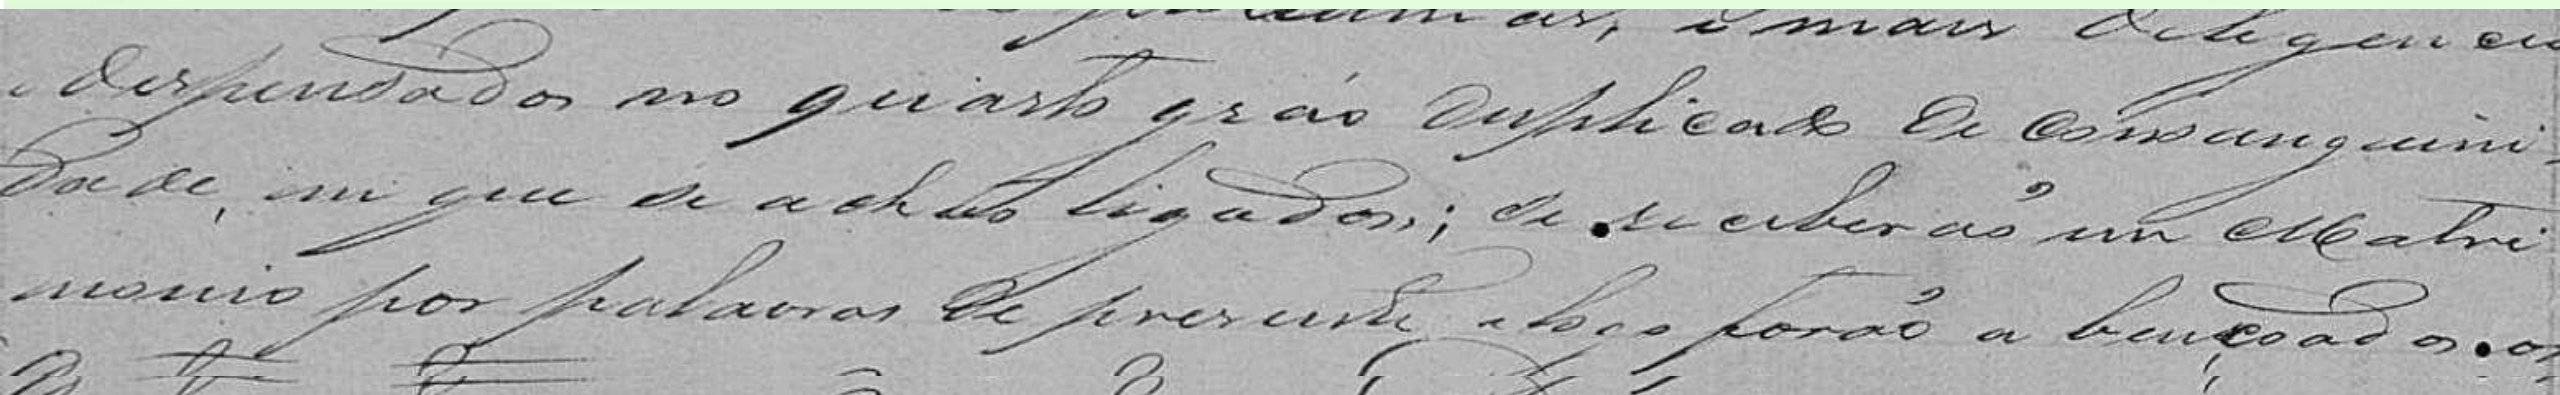 e mais deligencias
e despensados no quarto gráo duplicado de consanguini-
dade, em que se achão ligados; se receberaõ em Matri
monio por palavras de presente e logo foraõ abençoados os